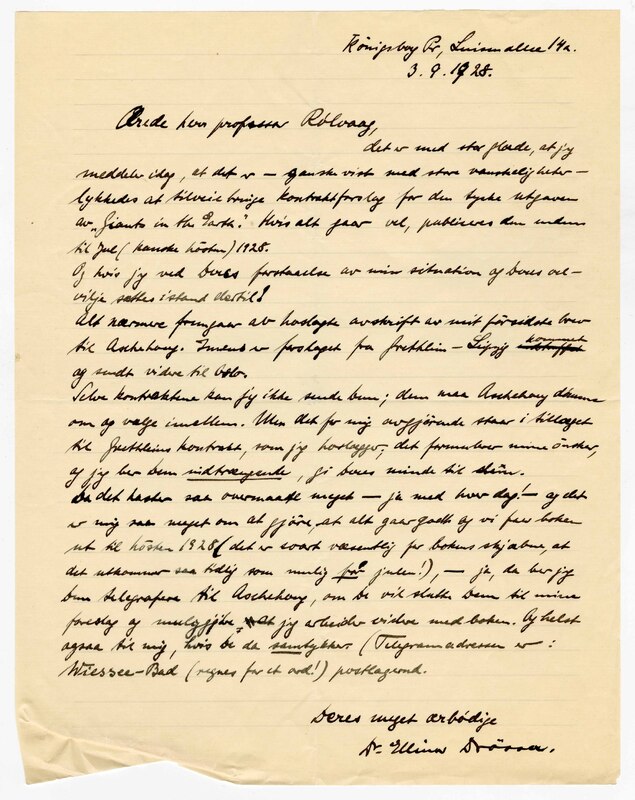 Königsberg Pr, Luisenallee 14a.
3. 9. 1928.
Ærede herr professor Rölvaag,
det er med stor glæde, at jeg
meddeler idag, at det er – ganske vist med store vanskeligheter –
lykkedes at tilveiebringe kontraktforslag for den tyske utgaven
av „Giants in the Earth". Hvis alt gaar vel, publiceres den inden
til Jul (kanske hösten) 1928.
Og hvis jeg ved Deres forstaaelse av min situation og Deres vel-
vilje sættes istand dertil!
Alt nærmere fremgaar av hoslagte avskrift av mit försidste brev
til Aschehoug. Imens er forslaget fra Grethlein – Leipzig kommet
og sendt videre til
Selve kontraktene kan jeg ikke sende Dem; dem maa Aschehoug
om og vælge imellem. Men det for mig avgjörende staar i tillæget
til Grethleins kontrakt, som jeg hoslægger; det formulerer mine önsker,
og jeg ber Dem indtrængende, gi Deres minde til dem.
Da det haster saa overmaate meget – ja med hver dag! – og det
er mig saa meget om at gjöre, at alt gaar godt og vi faar boken
ut til hösten 1928 (det er svært væsentlig for bokens skjæbne, at
det utkommer saa tidlig som mulig för julen!), – ja, da ber jeg
Dem telegrafere til Aschehoug, om De vil slutte Dem til mine
forslag og muliggjöre, at jeg arbeider videre med boken. Og helst
ogsaa til mig, hvis De da samtykker (Telegramadressen er:
Wiessee-Bad (regnes for et ord!) postlagernd.
Deres meget ærbödige
Dr. Ellinor Drösser.